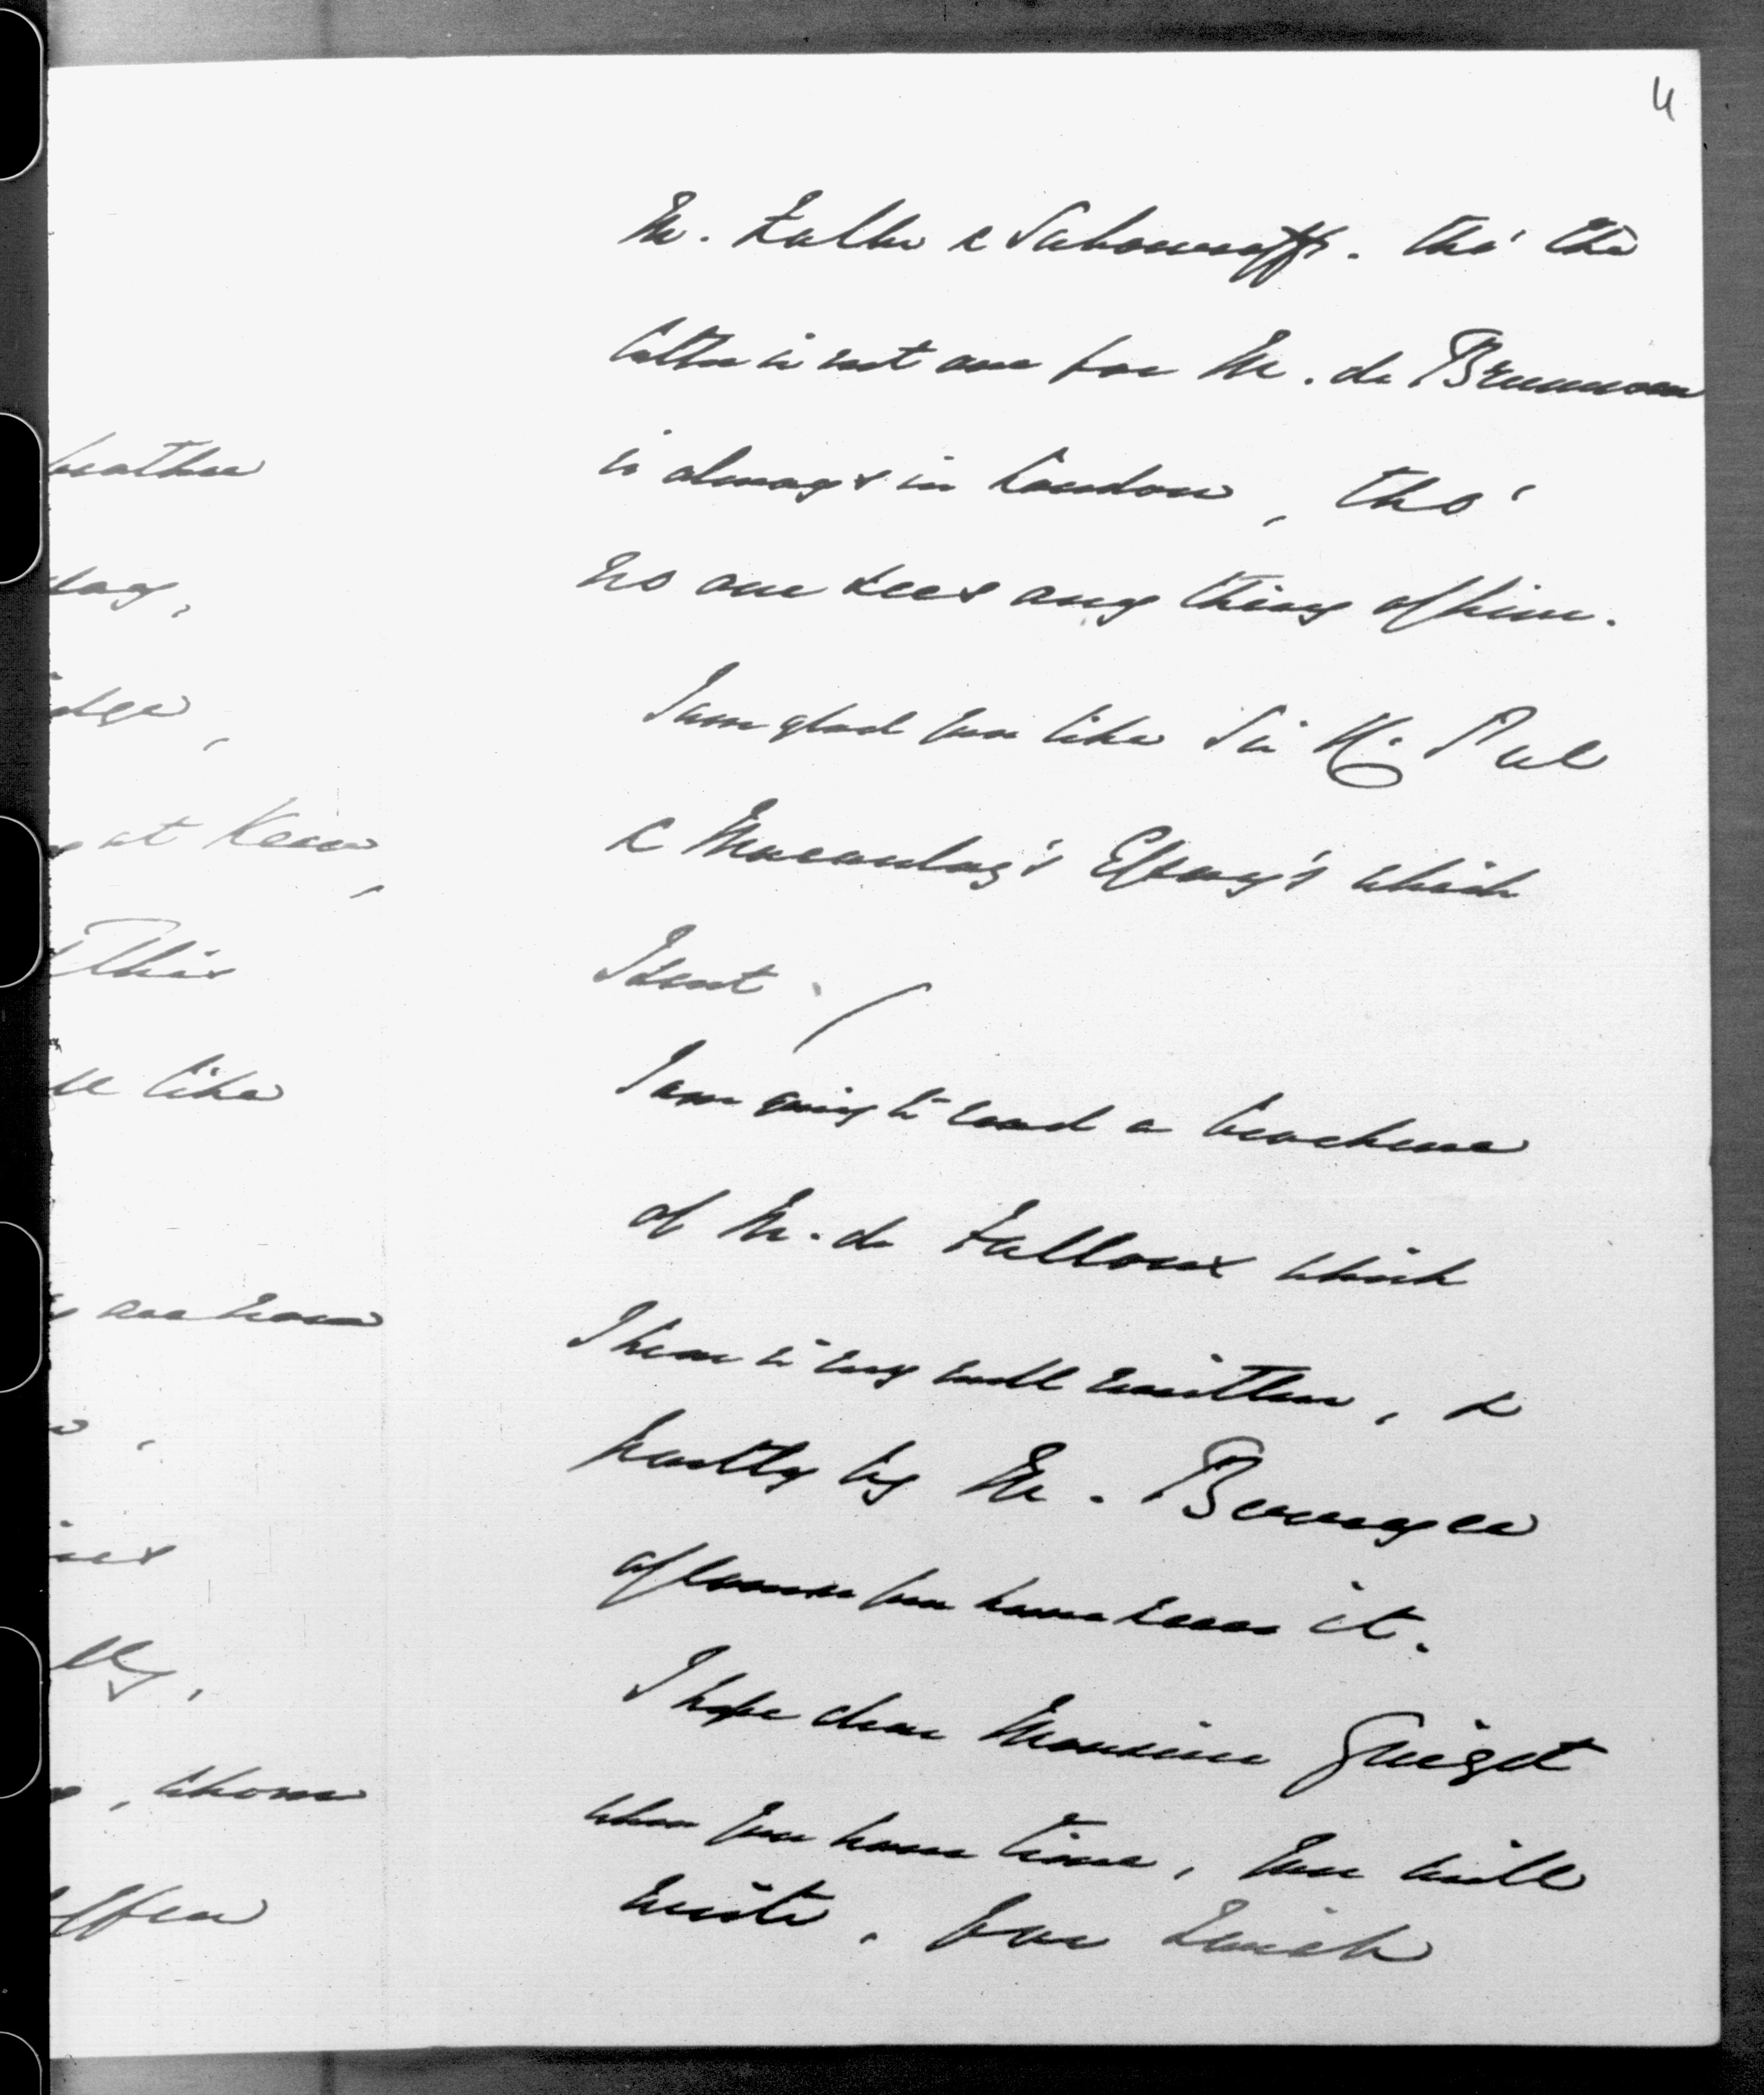 4
M. Falbe & Sabouroff. tho' the
latter is not one for M. de Brunnow
is always in London, tho'
no one sees any thing of him.
I am glad you like Sir R. Peel
& Macaulay's Essay's which
I sent.
I am going to read a brochure
of M. de Falloux which
I hear is very well written, &
partly by M. Berryer
of course you have seen it.
I hope dear Monsieur Guizot
when you have time, you will
write, for I wish
weather
day,
at Kew,
This
like
whom
Often